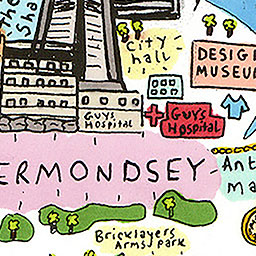 The
Sha
City
hall
DESIG
MUSEU
GUYS
Hospital
GUYS
Hospital
ERMONDSEY
Ant
ma
Bricklayers
Arms park